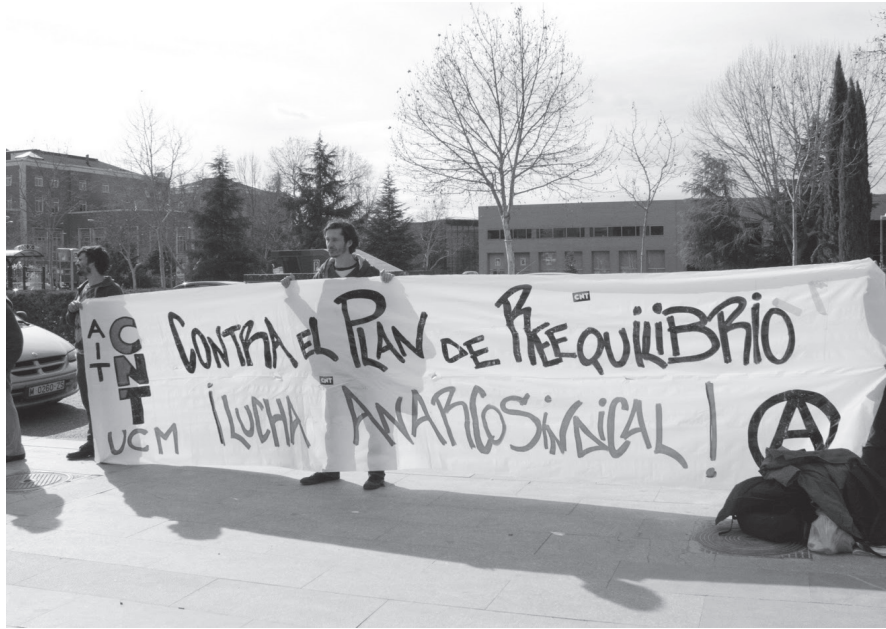 AIT
CNT
UCM
CONTRA EL PLAN DE REEQUILIBRIO
¡LUCHA ANARCOSINDICAL!
CNT
CNT
A